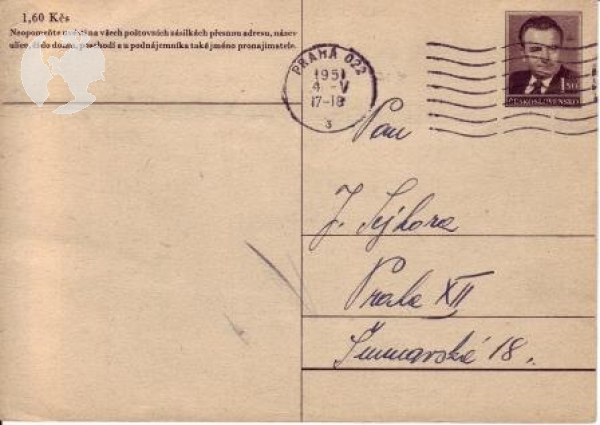 1,60 Kčs
Neopomeňte uvésti na všech poštovních zásilkách přesnou adresu, název
ulice, číslo domu, poschodí a u podnájemníka také jméno pronajimatele.
PRAHA 022
1951
4 -V
17-18
3
1,50
ČESKOSLOVENSKO
Pan
J. Sejkora
Praha XII
18.